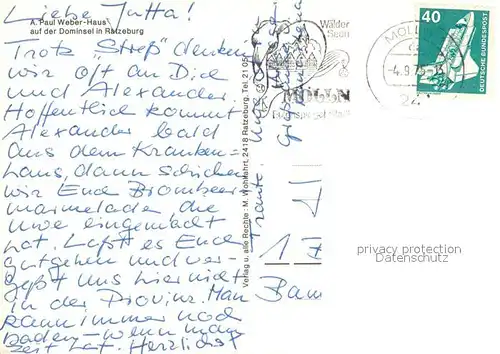 Liebe Jutta!
A. Paul Weber-Haus
auf der Dominsel in Ratzeburg
Trotz "Streß" denken
wir oft an Dich
und Alexander.
Hoffentlich kommt
Alexander bald
aus dem Kranken-
haus, dann schicken
wir Euch Brombeer-
marmelade die
Uwe eingemacht
hat. Laßt es Euch
gutgehen und ver-
geßt uns hier nicht
in der Provinz. Man
kann immer noch
baden – wenn man
Zeit hat. Herzlichst
Verlag u. alle Rechte: M. Wohlfahrt, 2418 Ratzeburg, Tel. 21 05
Wälder
Seen
MÖLLN
MÖLLN
-4.9.75
40
DEUTSCHE BUNDESPOST
1
Bam
privacy protection
Datenschutz